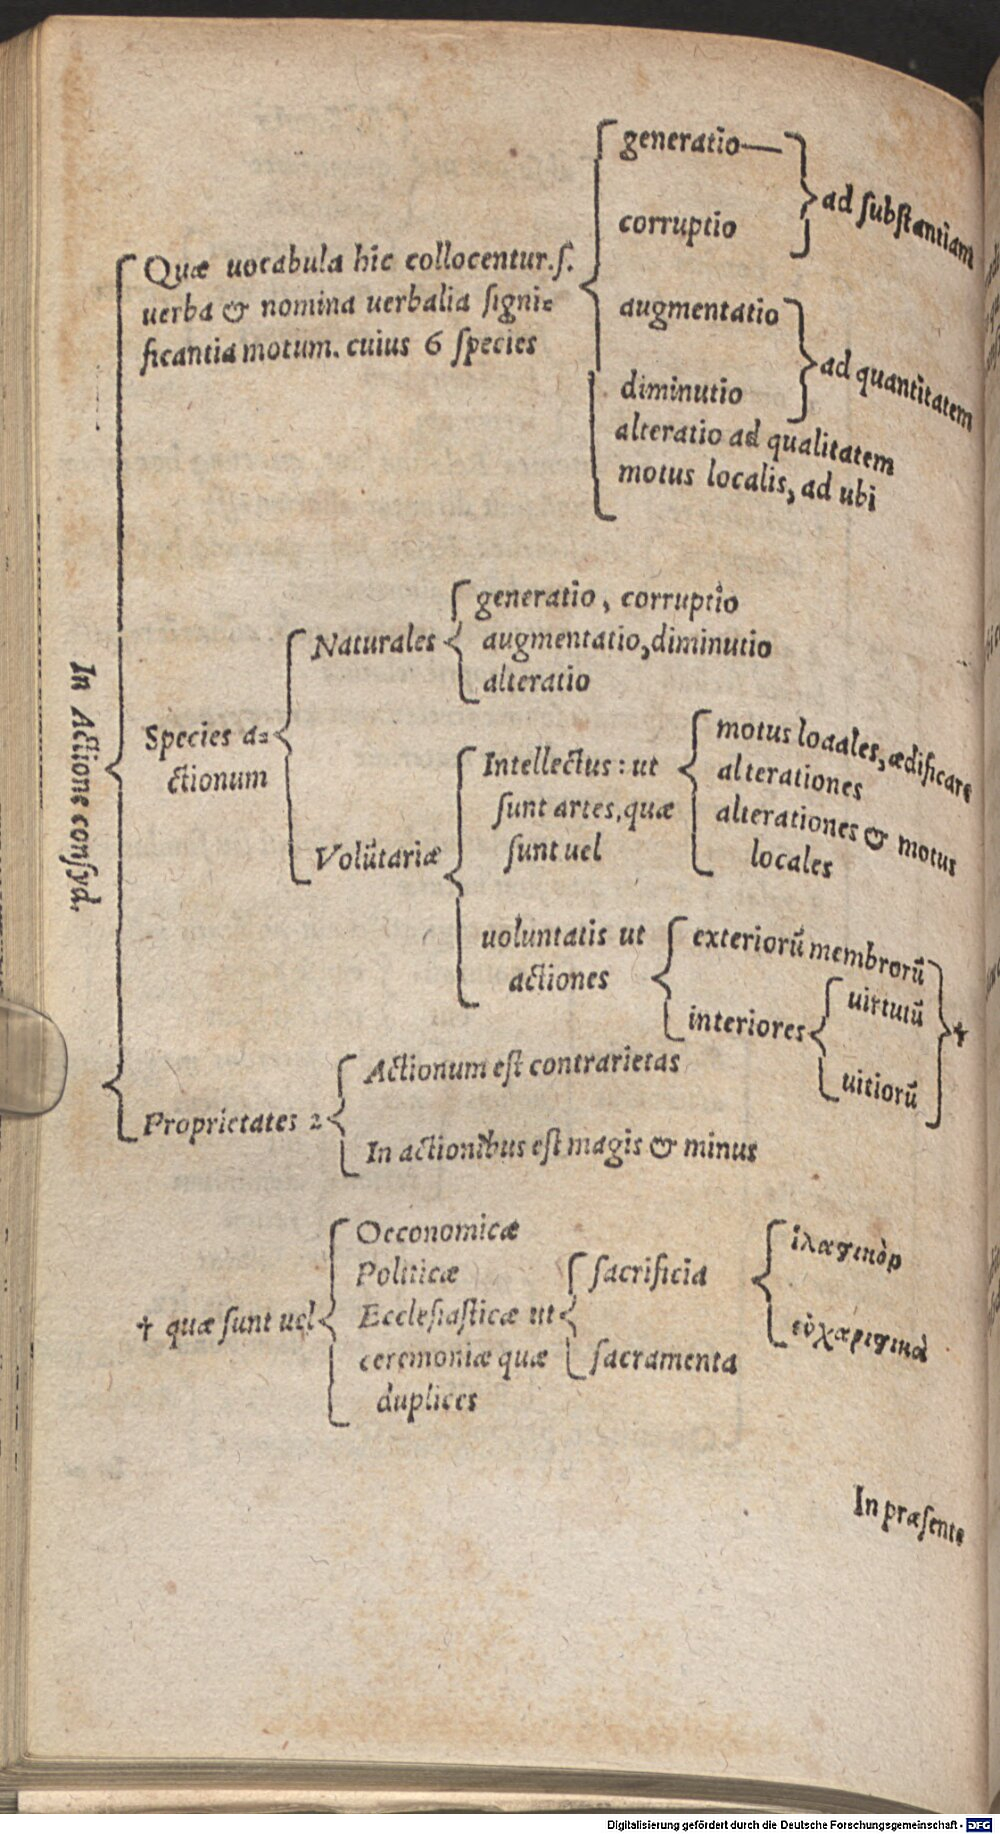 In Actione consyd.
Quæ uocabula hic collocentur.ſ.
uerba & nomina uerbalia ſigni=
ficantia motum. cuius 6 ſpecies
generatio
corruptio
ad ſubſtantiam
augmentatio
diminutio
ad quantitatem
alteratio ad qualitatem
motus localis, ad ubi
Species a=
ctionum
Naturales
generatio, corruptio
augmentatio, diminutio
alteratio
Volūtariæ
Intellectus: ut
ſunt artes, quæ
ſunt uel
motus loaales, ædificare
alterationes
alterationes & motus
locales
uoluntatis ut
actiones
exteriorū membrorū
interiores
uirtutū
uitiorū
✝
Proprietates 2
Actionum eſt contrarietas
In actionibus eſt magis & minus
✝ quæ ſunt uel
Oeconomicæ
Politicæ
Eccleſiaſticæ ut
ceremoniæ quæ
duplices
ſacrificia
ſacramenta
ἱλαϛικὸρ
εὐχαριϛικὰ
In præſente
Digitalisierung gefördert durch die Deutsche Forschungsgemeinschaft - DFG